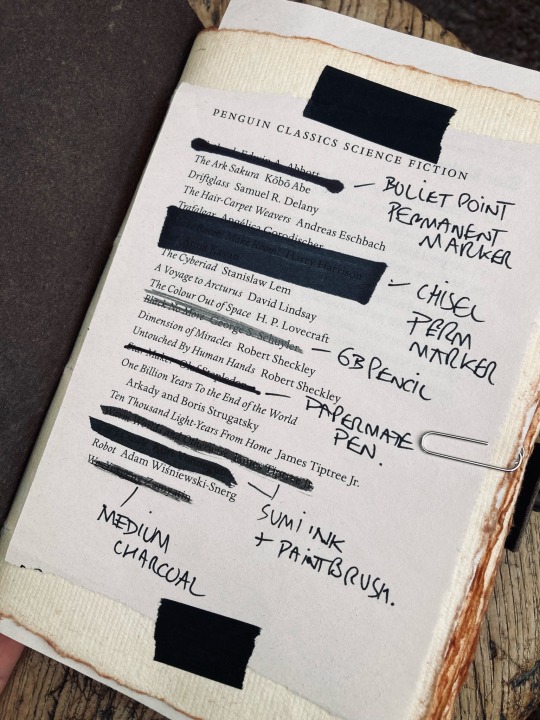 PENGUIN CLASSICS SCIENCE FICTION
Edwin A. Abbott
The Ark Sakura Kōbō Abe
Driftglass Samuel R. Delany
The Hair-Carpet Weavers Andreas Eschbach
Trafalgar Angélica Gorodischer
Make Room! Harry Harrison
The Cyberiad Stanisław Lem
A Voyage to Arcturus David Lindsay
The Colour Out of Space H. P. Lovecraft
Black No More George S. Schuyler
Dimension of Miracles Robert Sheckley
Untouched By Human Hands Robert Sheckley
Star Maker Olaf Stapledon
One Billion Years To the End of the World
Arkady and Boris Strugatsky
Ten Thousand Light-Years From Home James Tiptree Jr.
Robot Adam Wiśniewski-Snerg
BULLET POINT
PERMANENT
MARKER
CHISEL
PERM
MARKER
6B PENCIL
PAPERMATE
PEN.
SUMI INK
+ PAINTBRUSH.
MEDIUM
CHARCOAL